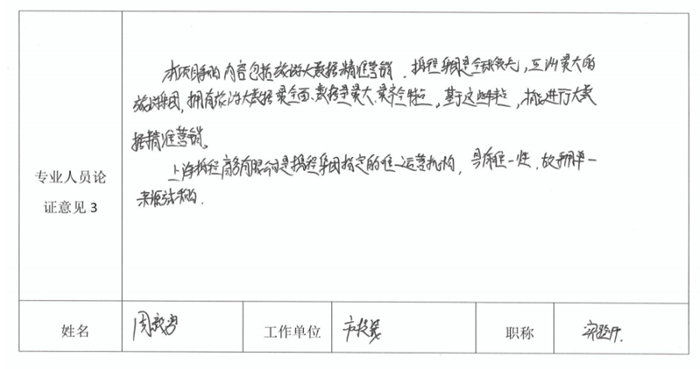 本次采购内容包括旅游大数据精准营销。携程集团是全球领先,亚洲最大的
旅游集团,拥有旅游大数据最全面、数据量最大、最齐全特点,基于这些特点,携程进行大数
据精准营销。
上海携程商务有限公司是携程集团指定的唯一运营机构,具有唯一性,故采用单一
来源式采购.
专业人员论
证意见 3
姓名 周 工作单位 职称